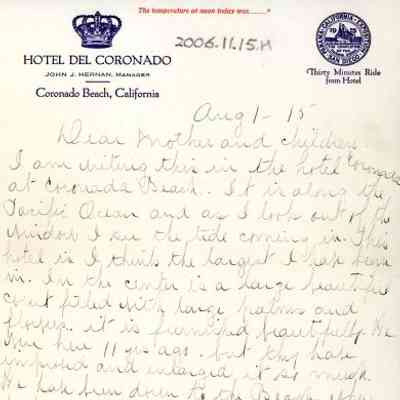 The temperature at noon today was........°
2006.11.15.M
HOTEL DEL CORONADO
JOHN J. HERNAN, MANAGER
Coronado Beach, California
PANAMA-CALIFORNIA EXPOSITION
1915
SAN DIEGO
Thirty Minutes Ride
from Hotel
Aug 1 - 15
Dear Mother and children
I am writing this in the hotel Coronado
at Coronada Beach. It is along the
Pacific Ocean and as I look out of the
window I see the tide comeing in. This
hotel is I think the largest I hab been
in. In the center is a large beautiful
court filled with large palms and
flowers. it is furnished beautifully. We
were here 11 yrs ago. but they have
improved and enlarged it so much.
We hab been down to the Beach